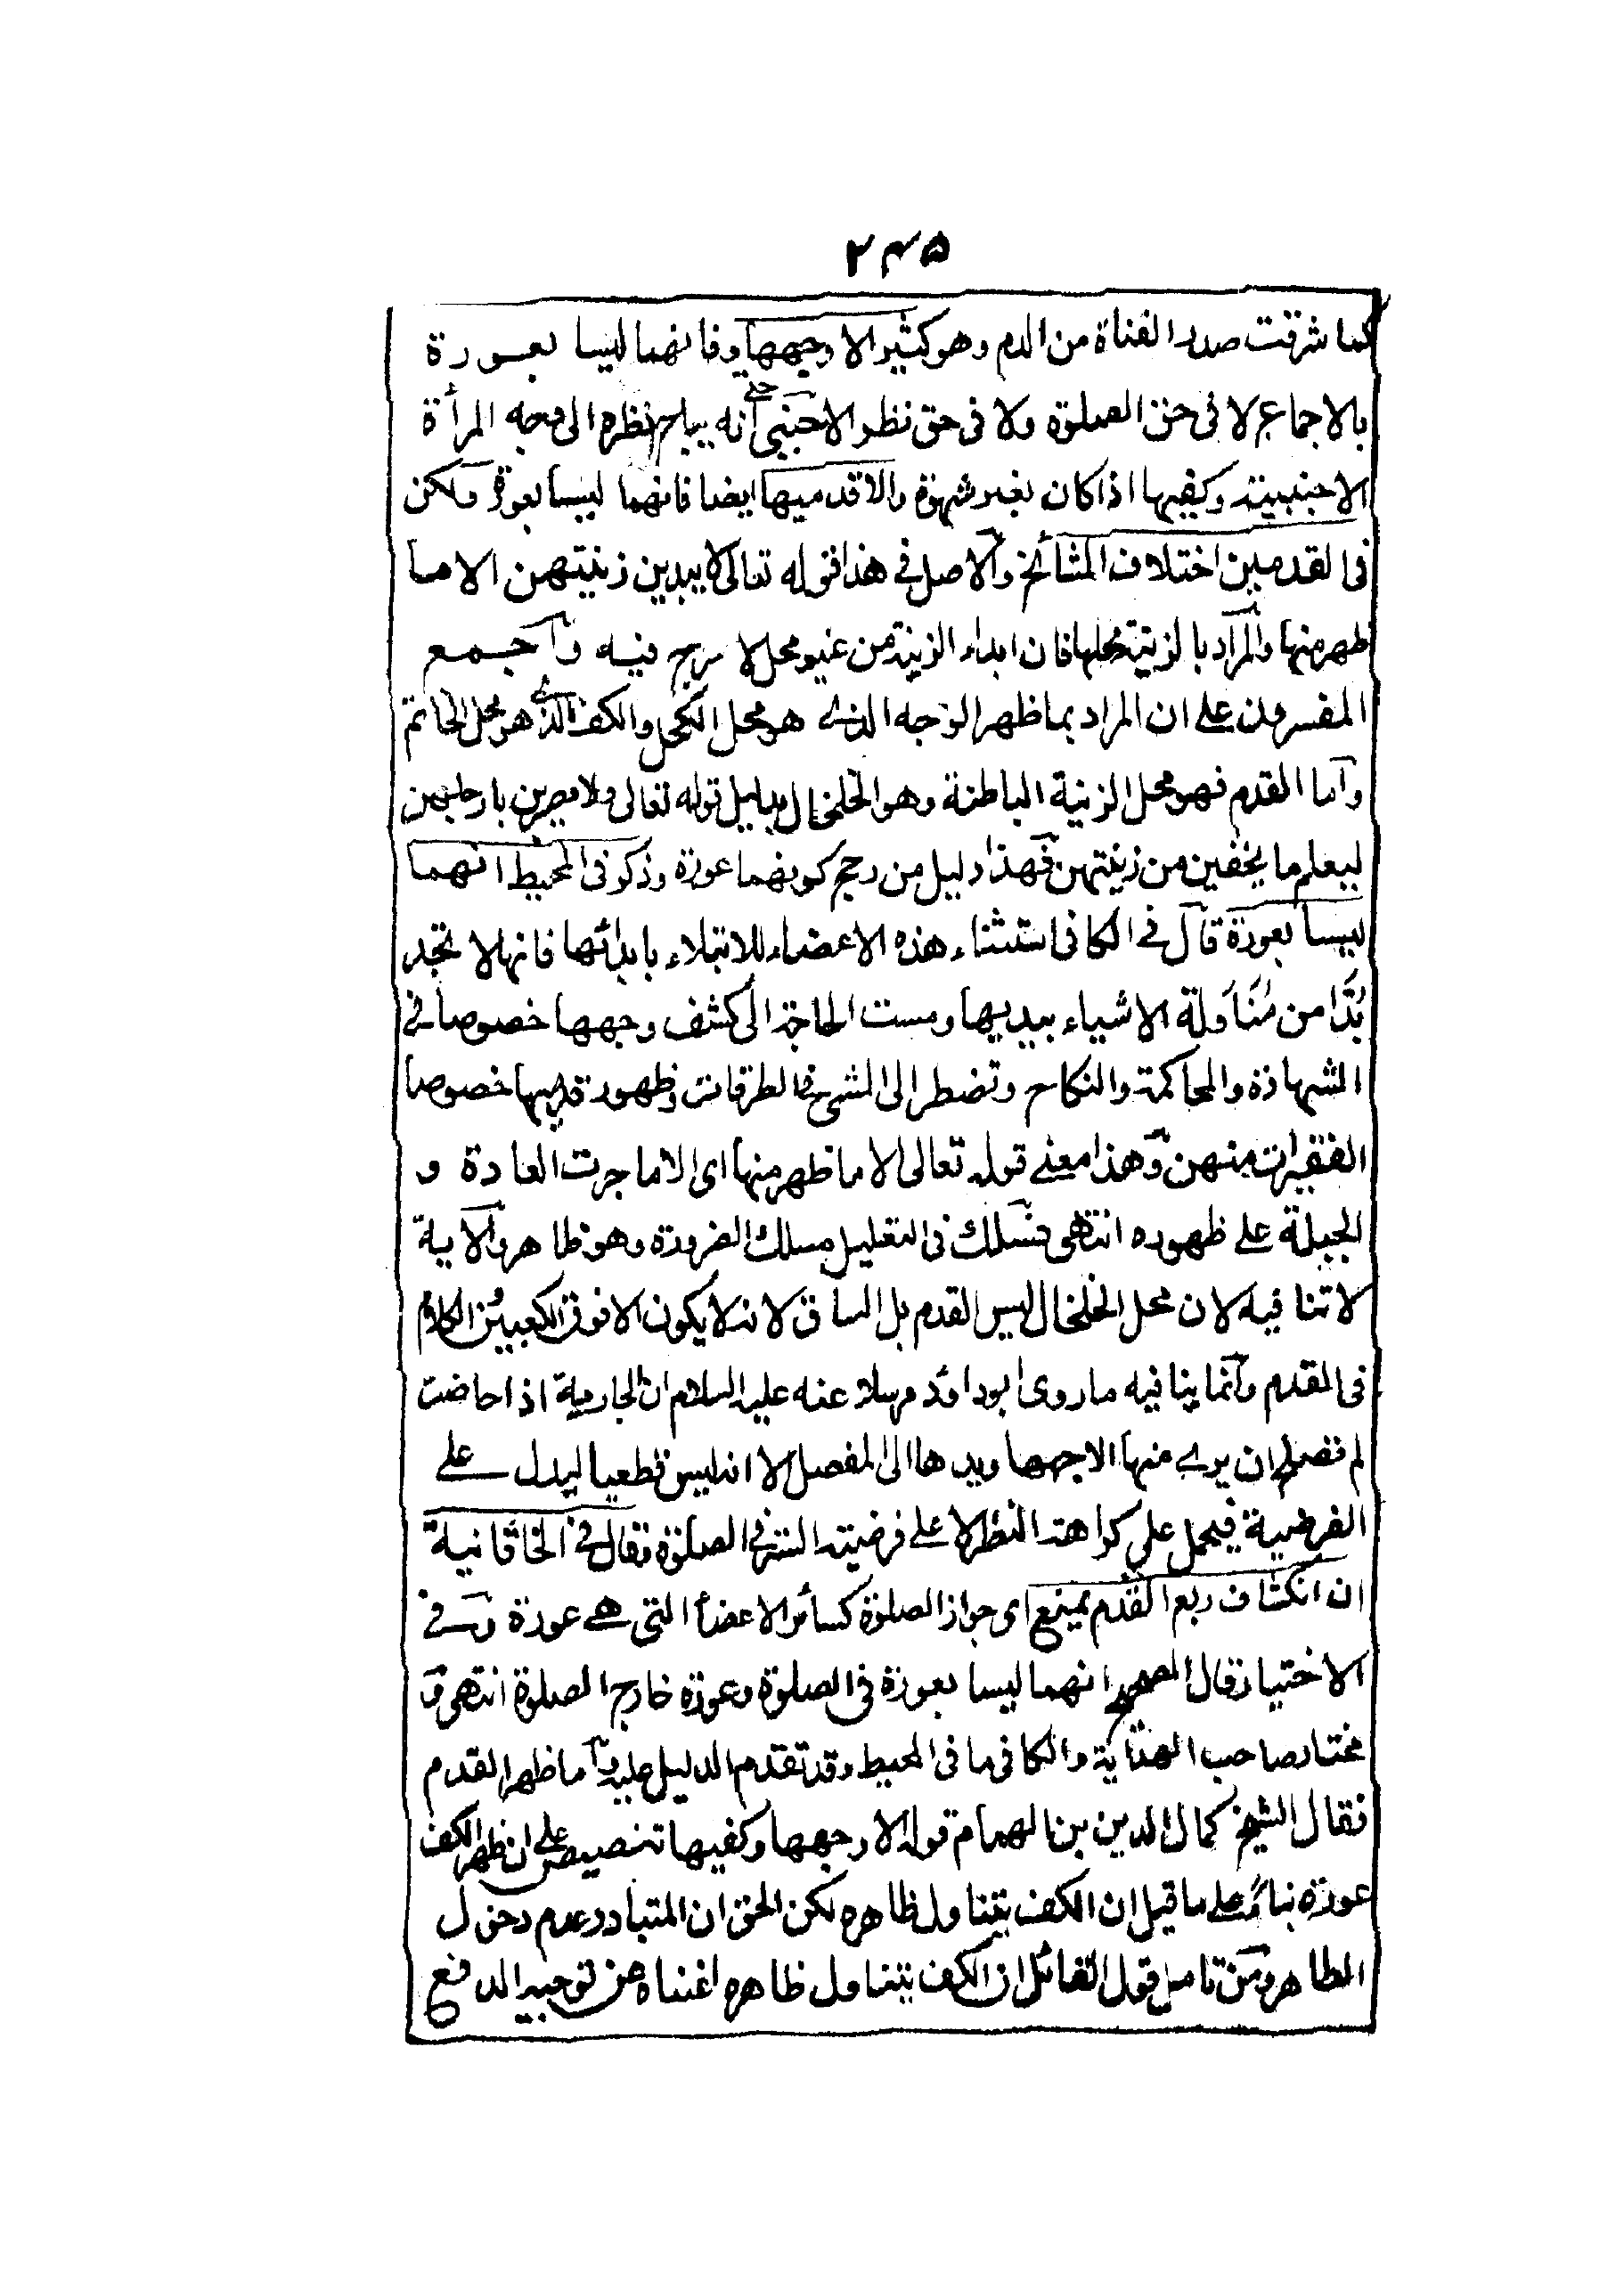 ۲۴۵
كما شرقت صدر القناة من الدم وهو كثير الا وجهها وفانهما ليسا بعورة
بالاجماع لا فى حق الصلوة ولا فى حق نظر الاجنبي حتى انه يباح نظره الى وجه المرأة
الاجنبية وكفيها اذا كان بغير شهوة والا قدميها ايضا فانهما ليسا بعورة ولكن
فى القدمين اختلاف المشائخ والاصل فى هذا قوله تعالى لا يبدين زينتهن الا ما
ظهر منها والمراد بالزينة محلها فان ابداء الزينة من غير محل لا حرج فيه واجمع
المفسرون على ان المراد بما ظهر الوجه الذى هو محل الكحل والكف الذى هو محل الخاتم
واما القدم فهو محل الزينة الباطنة وهو الخلخال بدليل قوله تعالى ولا يضربن بارجلهن
ليعلم ما يخفين من زينتهن فهذا دليل من رجح كونهما عورة وذكر فى المحيط انهما
ليسا بعورة قال فى الكافى استثناء هذه الاعضاء للابتلاء بابدائها فانها لا تجد
بُدَّا من مُنَاوَلة الاشياء بيديها ومست الحاجة الى كشف وجهها خصوصا فى
الشهادة والمحاكمة والنكاح وتضطر الى المشى فى الطرقات وظهور قدميها خصوصا
الفقيرات منهن وهذا معنى قوله تعالى الا ما ظهر منها اى الا ما جرت العادة و
الجبلة على ظهوره انتهى فسلك فى التعليل مسلك الضرورة وهو ظاهر والآية
لا تنافيه لان محل الخلخال ليس القدم بل الساق لانه لا يكون الا فوق الكعبين والكلام
فى القدم وانما ينافيه ما روى ابوداود مرسلا عنه عليه السلام ان الجارية اذا حاضت
لم تصلح ان يرى منها الا وجهها ويدها الى المفصل الا انه ليس قطعيا ليدل على
الفرضية فيحمل على كراهة النظر لا على فرضية الستر فى الصلوة وقال فى الخاقانية
ان انكشاف ربع القدم يمنع اى جواز الصلوة كسائر الاعضأ التى هى عورة وفى
الاختيار قال الصحيح انهما ليسا بعورة فى الصلوة وعورة خارج الصلوة انتهى و
مختار صاحب الهداية والكافى ما فى المحيط وقد تقدم الدليل عليه واما ظهر القدم
فقال الشيخ كمال الدين بن الهمام قوله الا وجهها وكفيها تنصيص على ان ظهر الكف
عورة بناءً على ما قيل ان الكف يتناول ظاهره لكن الحق ان المتبادر عدم دخول
الظاهر ومن تامل قول القائل ان الكف يتناول ظاهره اغناه عن توجيه الدفع